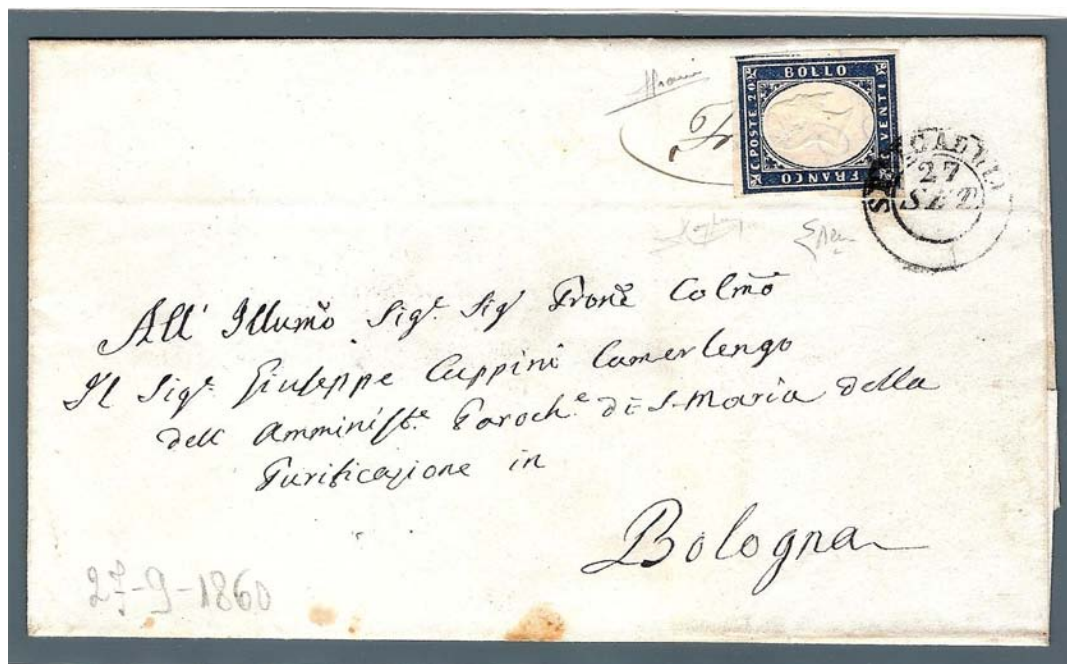 BOLLO
C. POSTE 20
C. VENTI
FRANCO
27
SET
All' Illumo Sigr. Sig Prone Colmo
Il Sigr. Giuseppe Cuppini Camerlengo
dell Amministe. Paroche. di S. Maria della
Purificazione in
Bologna
27-9-1860